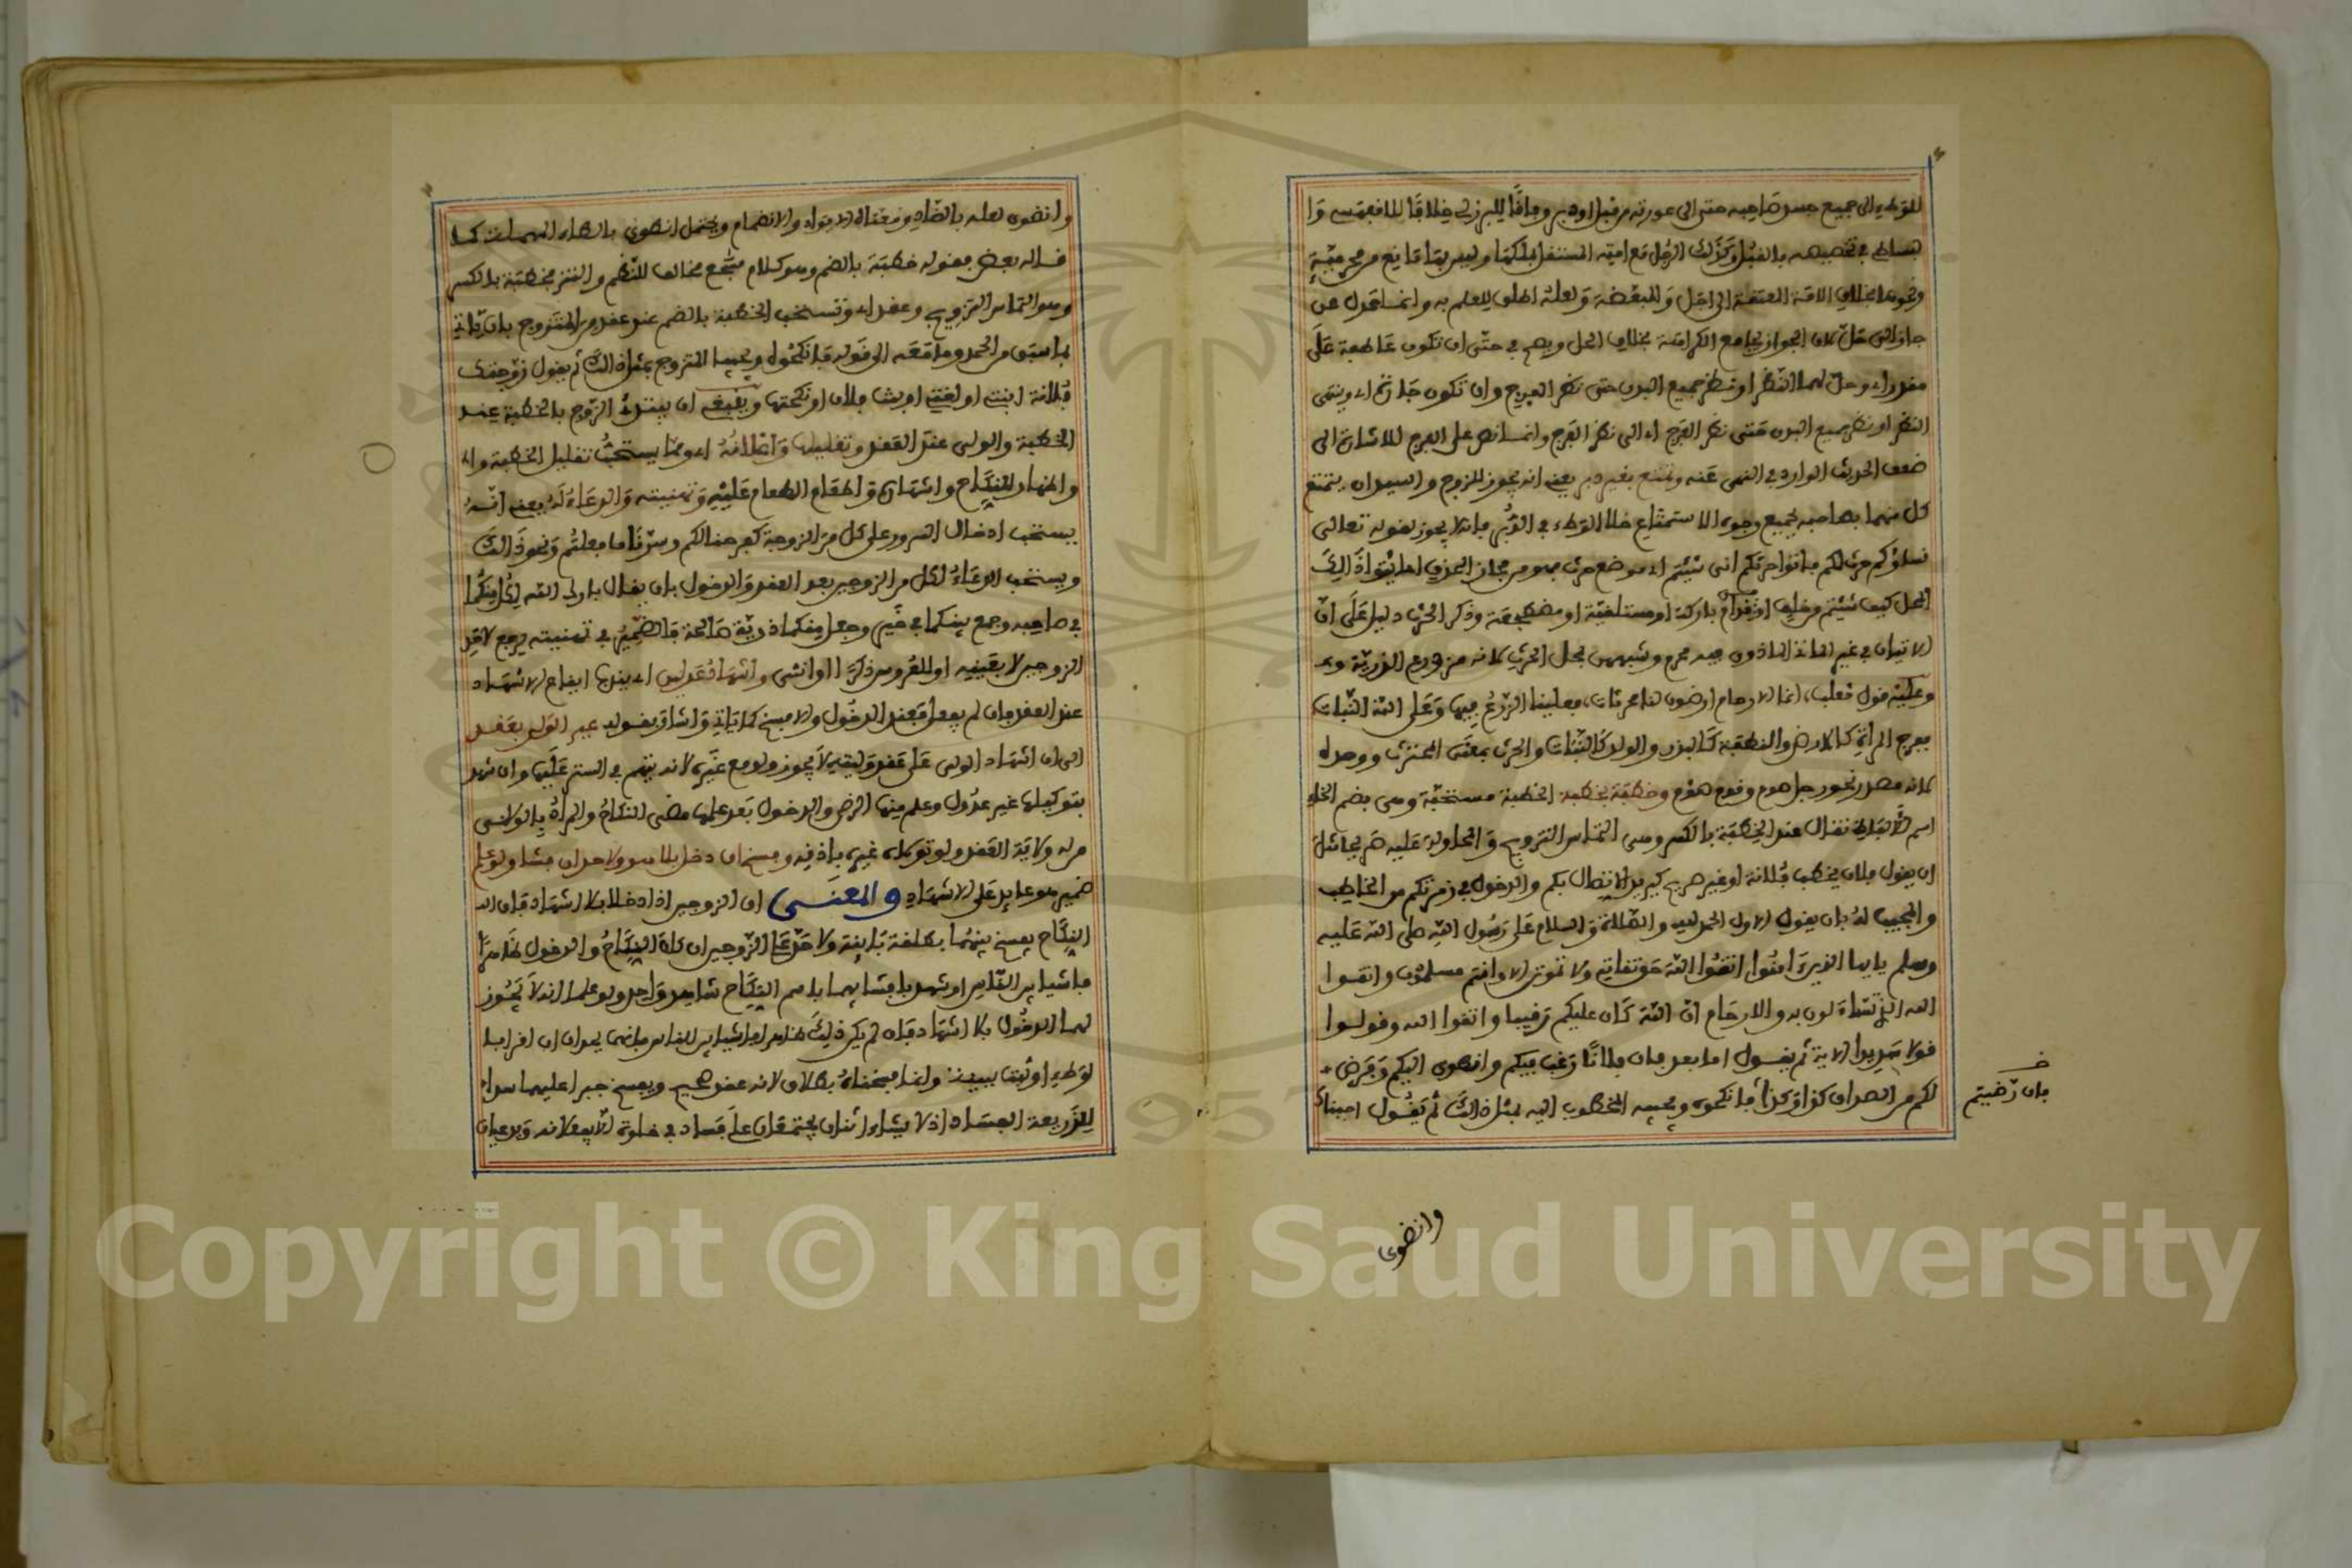 للوطء الى جميع جسد صاحبه حتى الى عورته من قبل او دبر وفاقا للبرزلي خلافا للافقهسي وا
لبساطي في تخصيصه بالقبل وكذلك الرجل مع امته المستقل بملكها وليس بها مانع من محرمية
ونحوها بخلاف الامة المعتقة الى اجل والمبعضة ولعله اطلق للعلم به وانما عدل عن
جاز الى حل لان الجواز يجامع الكراهة بخلاف الحل ويصح في حتى ان تكون عاطفة على
مقدر اي وحل لهما النظر او نظر جميع البدن حتى نظر الفرج وان تكون جارة اي وينتهي
النظر او نظر جميع البدن حتى نظر الفرج اي الى نظر الفرج وانما نص على الفرج للاشارة الى
ضعف الحديث الوارد في النهي عنه وتمتع بغير دبر يعني انه يجوز للزوج والسيد ان يتمتع
كل منهما بصاحبه بجميع وجوه الاستمتاع خلا الوطء في الدبر فانه لا يجوز لقوله تعالى
نساؤكم حرث لكم فاتوا حرثكم انى شئتم اي موضع حرث فهو من مجاز الحذف اي ايتوا ذالك
المحل كيف شئتم من خلف او قدام باركة او مستلقية او مضطجعة وذكر الحرث دليل على ان
الاتيان في غير الماتى الماذون فيه محرم وشبههن بمحل الحرث لانه مزدرع الذرية
وعليه قول ثعلب، انما الارحام ارضون لنا محرثات، فعلينا الزرع فيها وعلى الله النبات
ففرج المراة كالارض والنطفة كالبذر والولد كالنبات والحرث بمعنى المحترث ووحد له
لانه مصدر نحو رجل صوم وقوم صوم وخطبة بخطبة الخطبة مستحبة وهي بضم الخاء
اسم لالفاظ تقال عند الخطبة بالكسر وهي التماس التزويج والمحاولة عليه صريحا مثل
ان يقول فلان يخطب فلانة او غير صريح كيريد الاتصال بكم والدخول في زمرتكم من الخاطب
والمجيب له بان يقول الاول الحمد لله والصلاة والسلام على رسول الله صلى الله عليه
وسلم يايها الذين ءامنوا اتقوا الله حق تقاته ولا تموتن الا وانتم مسلمون واتقوا
الله الذي تساءلون به والارحام ان الله كان عليكم رقيبا واتقوا الله وقولوا
قولا سديدا الاية ثم يقول اما بعد فان فلانا رغب فيكم وانضوى اليكم وفرض
لكم من الصداق كذا وكذا فانكحوه ويجيبه المخطوب اليه بمثل ذالك ثم يقول اجبناك
فان رضيتم
وانضوى
وانضوى لعله بالضاد ومعناه الايواء والانضمام ويحتمل انطوى بالطاء المهملة كما
قاله بعض فقوله خطبة بالضم وهو كلام مسجع مخالف للنظم والنثر بخطبة بالكسر
وهو التماس التزويج وعقد اي وتستحب الخطبة بالضم عند عقد من المتزوج بان ياتي
بما سبق من الحمد وما معه الى قوله فانكحوه ويجيب المتزوج بمثل ذالك ثم يقول زوجتك
فلانة ابنتي او لغيره بنت فلان او نكحتها وينبغي ان يبتدئ الزوج بالخطبة عند
الخطبة والولي عند العقد وتقليلها واعلانه اي ومما يستحب تقليل الخطبة واع
واظهار للنكاح واشهاره واطعام الطعام عليه وتهنئته والدعاء له يعني انه
يستحب ادخال السرور على كل من الزوجين كفرحنا لكم وسرنا ما فعلتم ونحو ذالك
ويستحب الدعاء لكل من الزوجين بعد العقد والدخول بان يقال بارك الله لكل منكما
في صاحبه وجمع بينكما في خير وجعل منكما ذرية صالحة فالضمير في تهنئته يرجع لاحد
الزوجين لا بقيد او للعروس ذكرا او انثى واشهاد عدلين اي يندب ايقاع الاشهاد
عند العقد فان لم يفعل فعند الدخول والا فسخ كما ياتي واشار بقوله غير الولي بعقده
الى ان اشهاد الولي على عقد وليته لا يجوز ولو مع غيره لانه يتهم في الستر عليها وان شهد
بتوكيلها غير عدول وعلم منها الرضى والدخول بعد علمها مضى النكاح والمراد بالولي
من له ولاية العقد ولو توكله غيره باذنه وفسخ ان دخلا بلاه ولا حد ان فشا ولو علم
ضمير هو عايد على الاشهاد والمعنى ان الزوجين اذا دخلا بلا اشهاد فان
النكاح يفسخ بينهما بطلقة باينة ولا حد على الزوجين ان كان النكاح والدخول ظاهرا
فاشيا بين الناس او شهد بابتنائهما باسم النكاح شاهد واحد ولو علما انه لا يجوز
لهما الدخول بلا اشهاد فان لم يكن ذلك ظاهرا فاشيا بين الناس فانهما يحدان ان اقرا بال
لوطء او ثبت ببينة وانما فسخناه بطلاق لانه عقد صحيح ويفسخ جبرا عليهما سدا
للذريعة الفساد اذ لا يشاء اثنان يجتمعان على فساد في خلوة الا يفعلانه ويدعيان